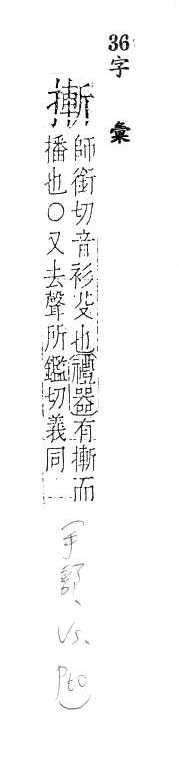 36字 彙
摲
師銜切音衫芟也禮器有摲而
播也○又去聲所鑑切義同
(手部、Vs. Pto)